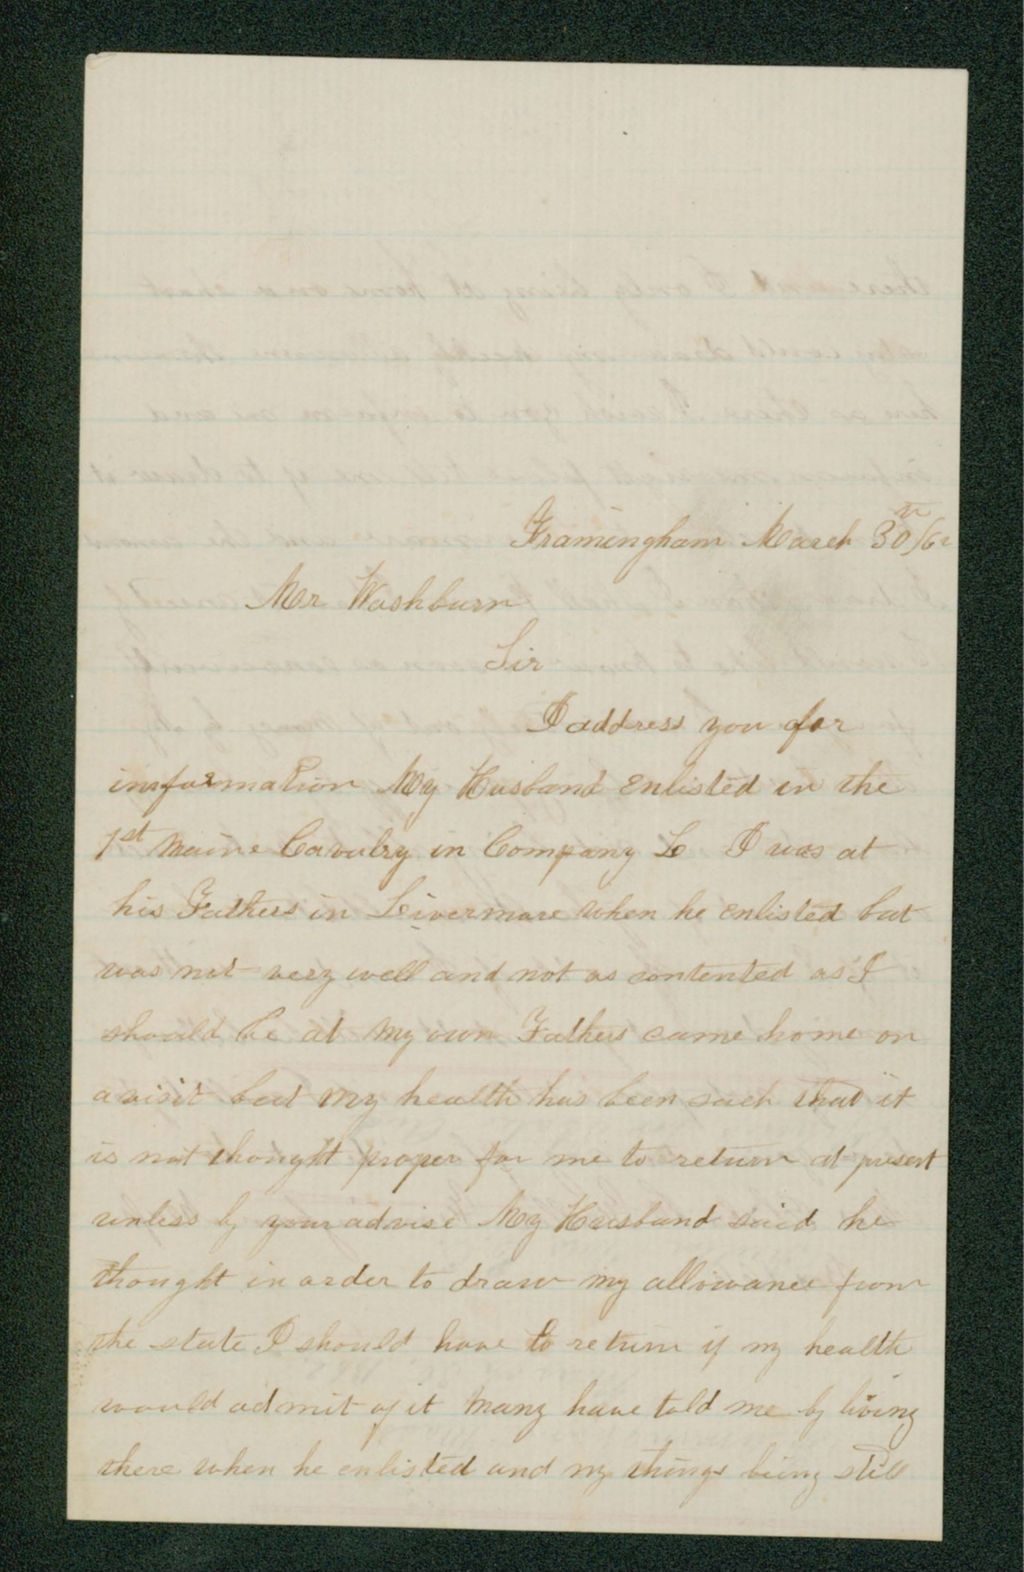 Framingham March 30th/62
Mr Washburn
Sir
I address you for
information My Husband enlisted in the
1st Maine Cavalry in Company L I was at
his Fathers in Livermore when he enlisted but
was not very well and not as contented as I
should be at my own Fathers came home on
a visit but my health has been such that it
is not thought proper for me to return at present
unless by your advise My Husband said he
thought in order to draw my allowance from
the state I should have to return if my health
would admit of it Many have told me by living
there when he enlisted and my things being still